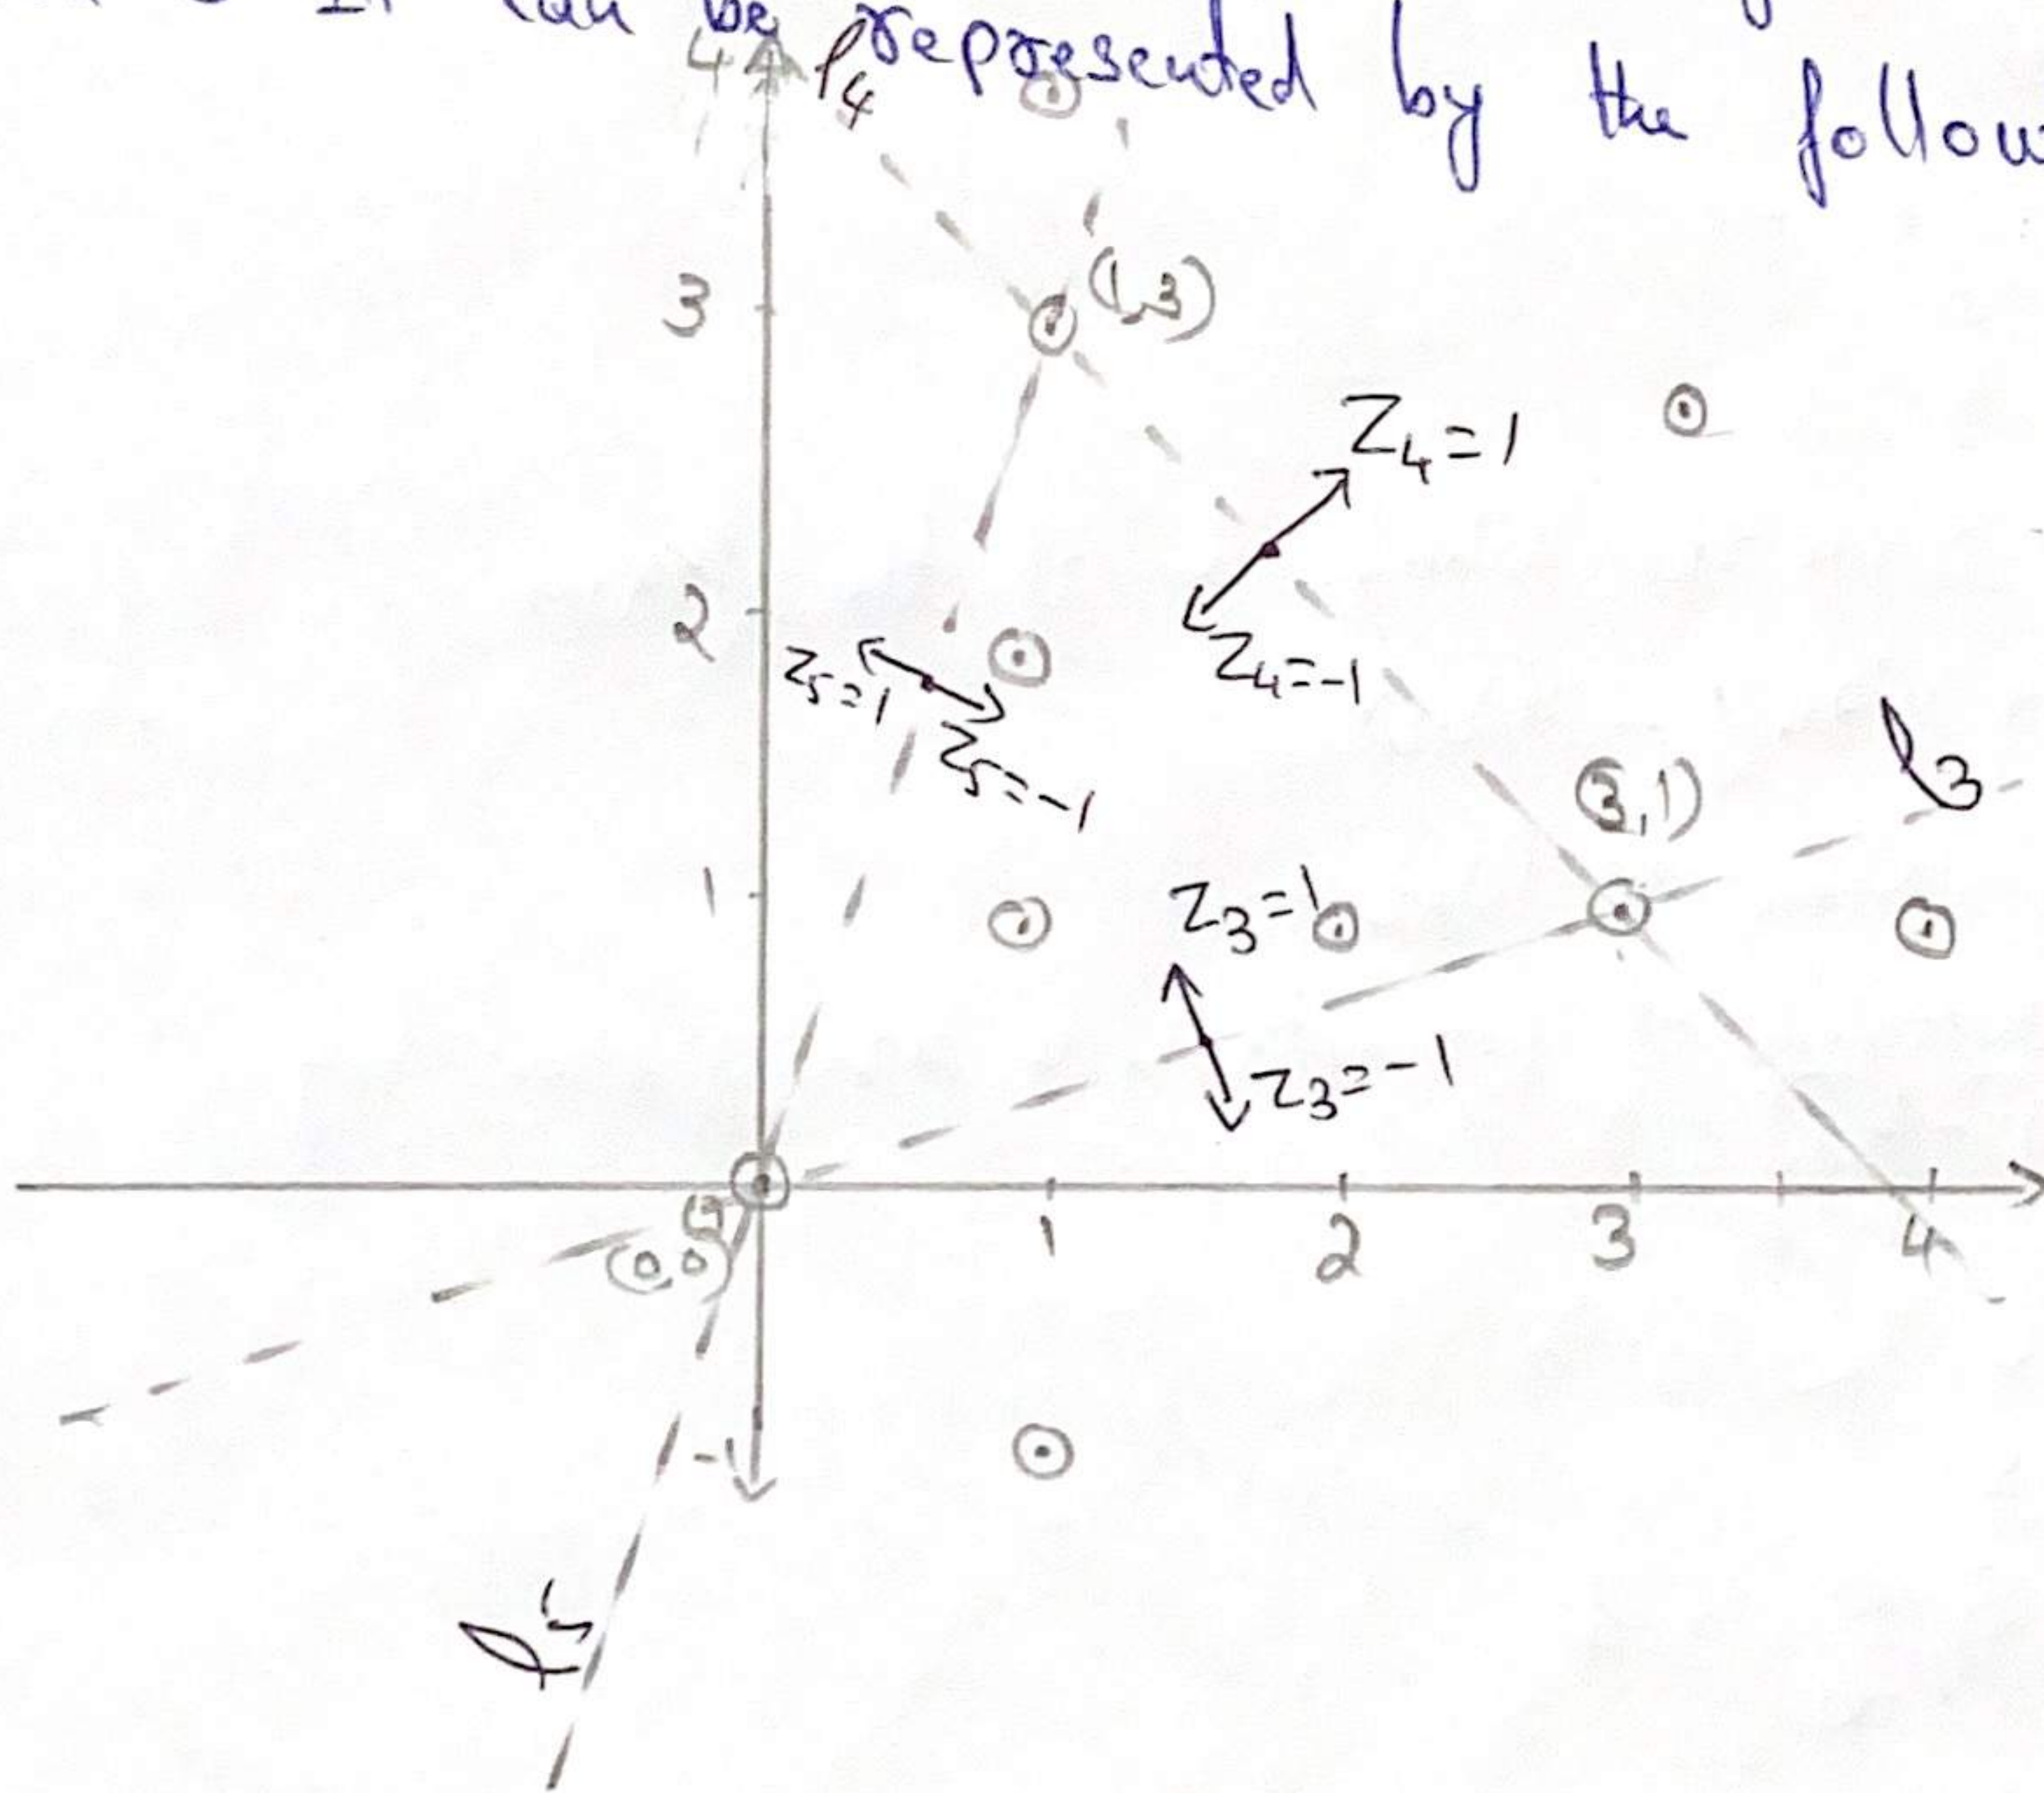 can be represented by the follow
4 l4
3 (1,3)
Z4=1
2 Z4=-1
Z5=1
Z5=-1
l3
(3,1)
1 Z3=1
Z3=-1
(0,0) 1 2 3 4
-1
l5